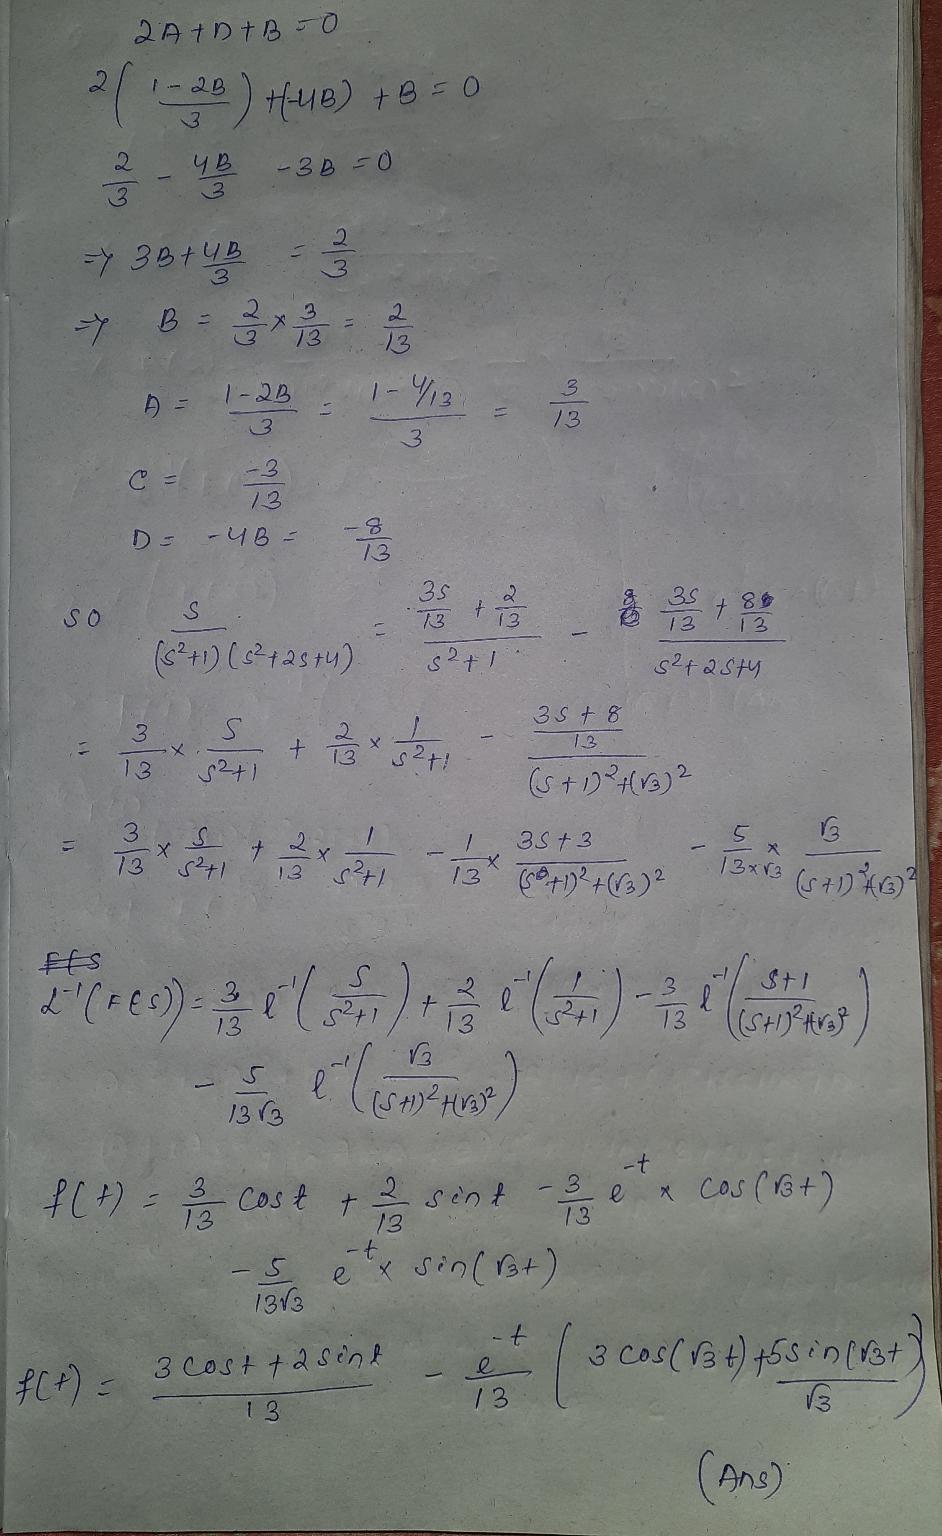 2A+D+B=0
2((1-2B)/3)+(-4B)+B=0
2/3 - 4B/3 -3B=0
=> 3B+4B/3 = 2/3
=> B = 2/3 × 3/13 = 2/13
A = (1-2B)/3 = (1-4/13)/3 = 3/13
C = -3/13
D = -4B = -8/13
SO S/((S²+1)(S²+2S+4)) = (3S/13 + 2/13)/(S²+1) - (3S/13 + 8/13)/(S²+2S+4)
= 3/13 × S/(S²+1) + 2/13 × 1/(S²+1) - ((3S+8)/13)/((S+1)²+(√3)²)
= 3/13 × S/(S²+1) + 2/13 × 1/(S²+1) - 1/13 × (3S+3)/((S+1)²+(√3)²) - 5/(13×√3) × √3/((S+1)²+(√3)²)
L⁻¹(F(S)) = 3/13 L⁻¹(S/(S²+1)) + 2/13 L⁻¹(1/(S²+1)) - 3/13 L⁻¹((S+1)/((S+1)²+(√3)²))
- 5/(13√3) L⁻¹(√3/((S+1)²+(√3)²))
f(t) = 3/13 cost + 2/13 sint - 3/13 e^-t × cos(√3t)
- 5/(13√3) e^-t × sin(√3t)
f(t) = (3cost+2sint)/13 - e^-t/13 (3cos(√3t)+5sin(√3t)/√3)
(Ans)